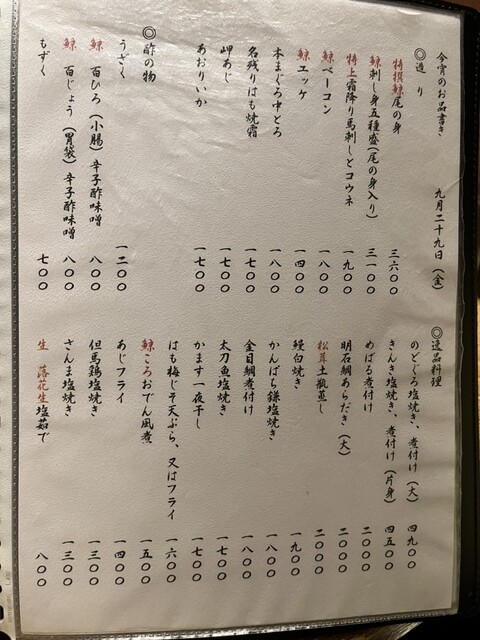 今宵のお品書き 九月二十九日(金)
◎造り
特撰鯨尾の身 三六〇〇
鯨刺し身五種盛(尾の身入り) 三一〇〇
特上霜降り馬刺しとコウネ 一九〇〇
鯨ベーコン 一八〇〇
鯨エッケ 一四〇〇
本まぐろ中とろ 一八〇〇
名残りはも焼霜 一七〇〇
岬あじ 一七〇〇
あおりいか 一七〇〇
◎酢の物
うざく 一二〇〇
鯨 百ひろ(小腸)辛子酢味噌 八〇〇
鯨 百じょう(胃袋)辛子酢味噌 八〇〇
もずく 七〇〇
◎逸品料理
のどぐろ塩焼き、煮付け(大) 四九〇〇
きんき塩焼き、煮付け(片身) 四五〇〇
めばる煮付け 二〇〇〇
明石鯛あらだき(大) 二〇〇〇
松茸土瓶蒸し 二〇〇〇
鰻白焼き 一九〇〇
かんぱち鎌塩焼き 一八〇〇
金目鯛煮付け 一八〇〇
太刀魚塩焼き 一七〇〇
かます一夜干し 一七〇〇
はも梅じそ天ぷら、又はフライ 一六〇〇
鯨ころおでん風煮 一五〇〇
あじフライ 一四〇〇
但馬鶏塩焼き 一三〇〇
さんま塩焼き 一三〇〇
生 落花生塩茹で 八〇〇